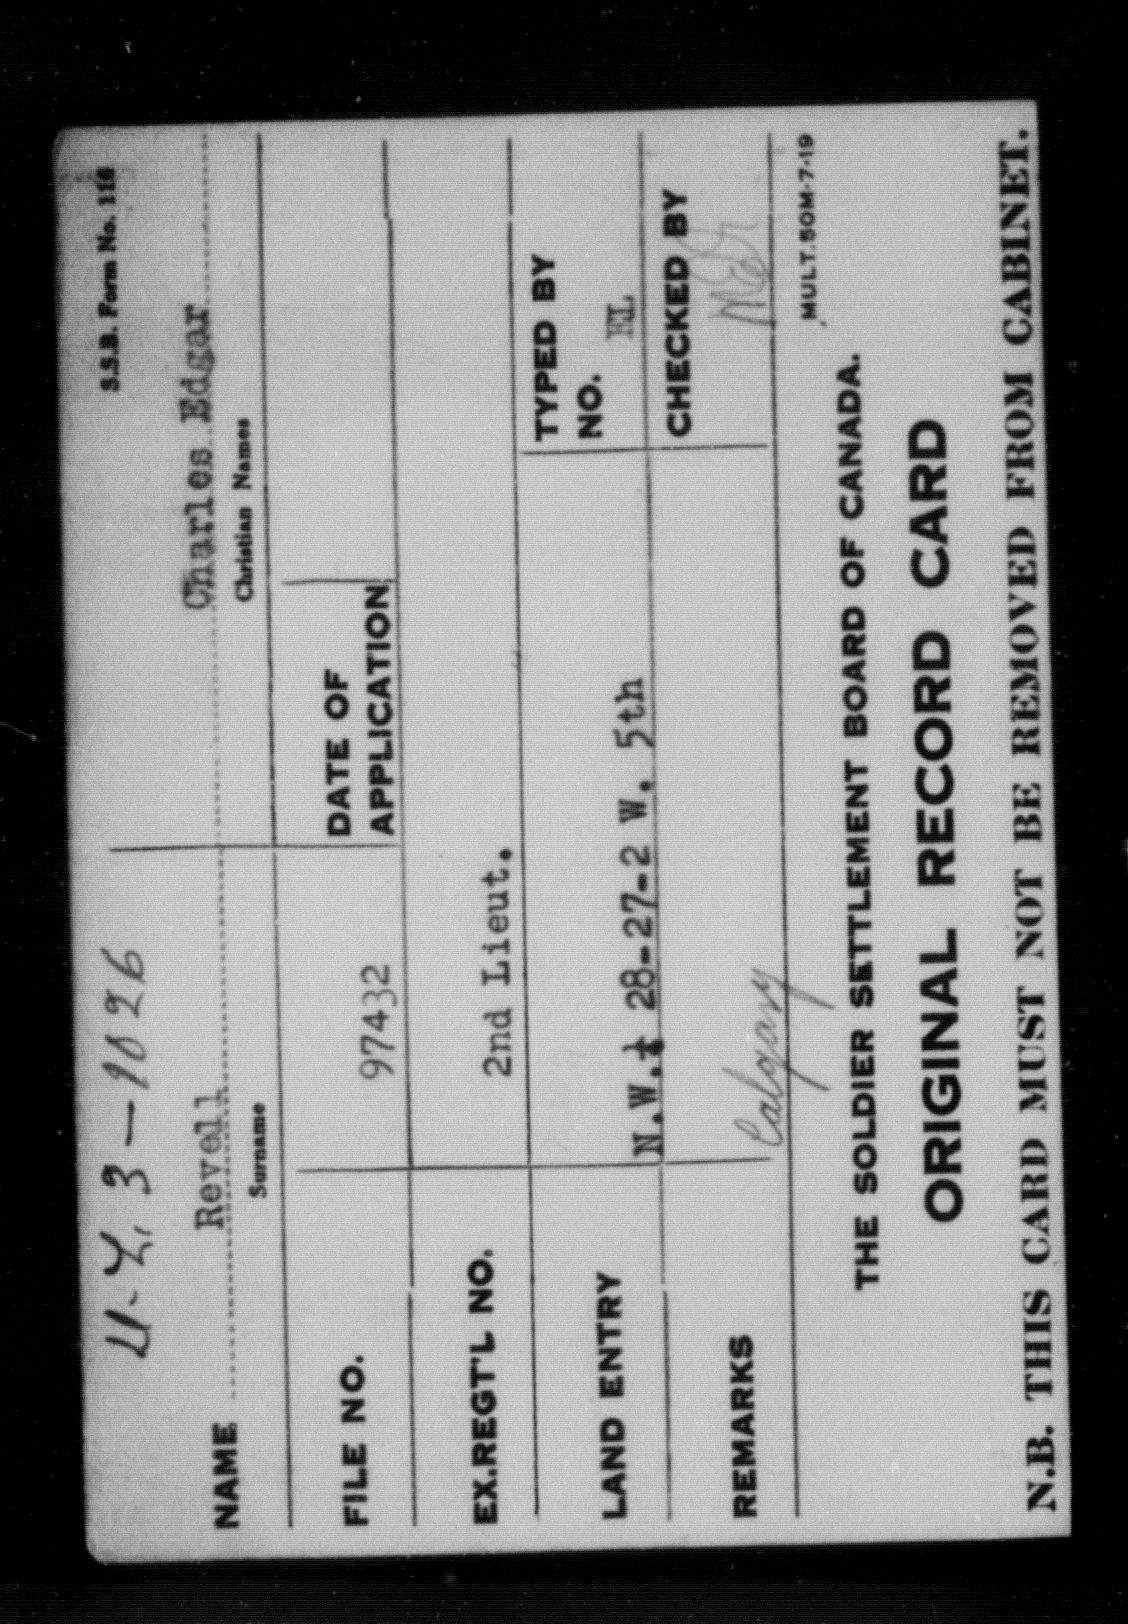 S.S.B. Form No. 116
4-4, 3-1026
NAME Revell Charles Edgar
Surname Christian Names
FILE NO. 97432 DATE OF APPLICATION
EX.REGT'L NO. 2nd Lieut.
TYPED BY
NO. EL
LAND ENTRY N.W.¼ 28-27-2 W. 5th
CHECKED BY
REMARKS Calgary
MULT.50M-7-19
THE SOLDIER SETTLEMENT BOARD OF CANADA.
ORIGINAL RECORD CARD
N.B. THIS CARD MUST NOT BE REMOVED FROM CABINET.